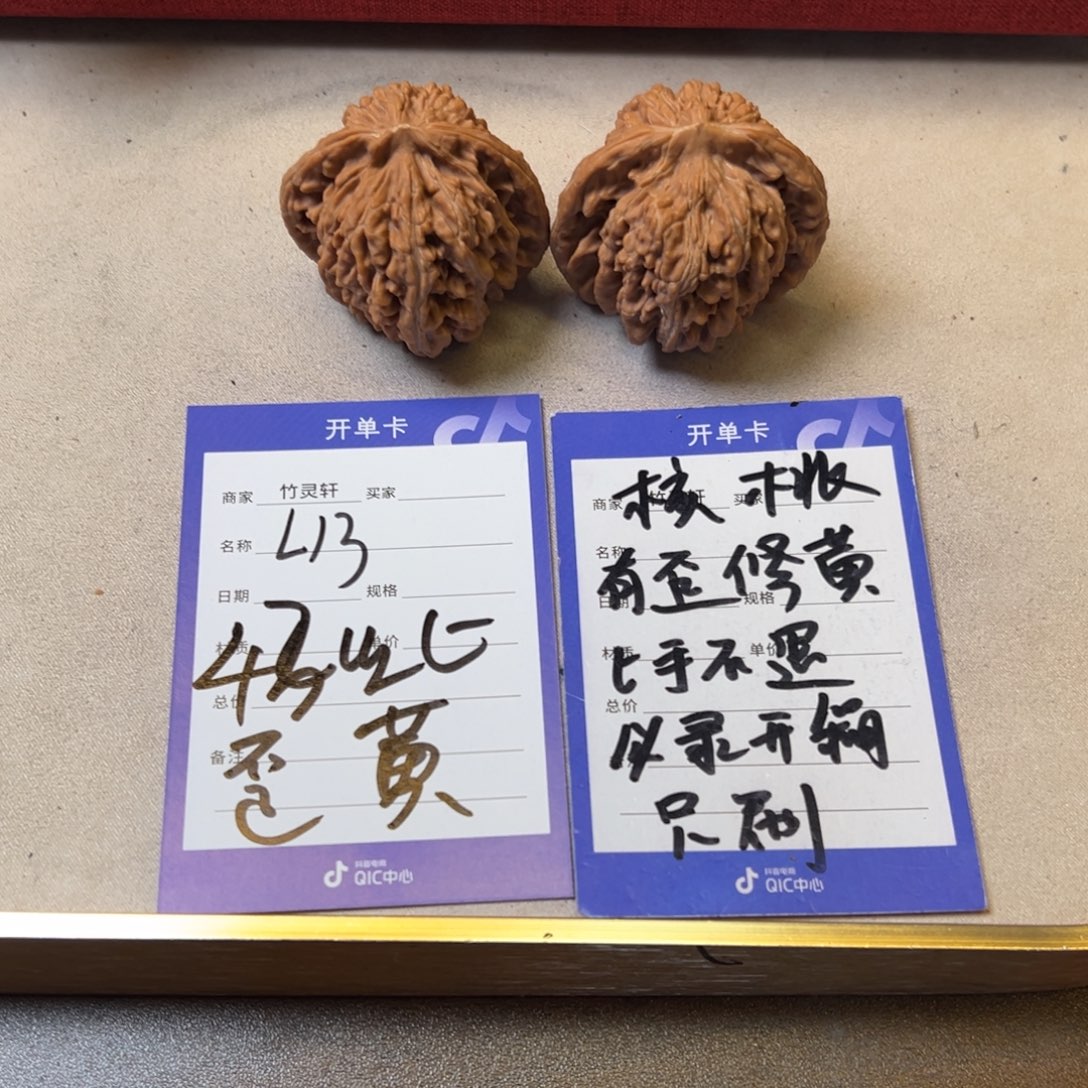 开单卡
商家 竹灵轩 买家
名称 413
日期 规格
材质 单价
总价
备注 歪 黄
抖音电商
QIC中心
开单卡
商家 买家
核桃
名称
有歪修黄
日期 规格
材质 单价
上手不退
总价
必录开箱
只刷
抖音电商
QIC中心